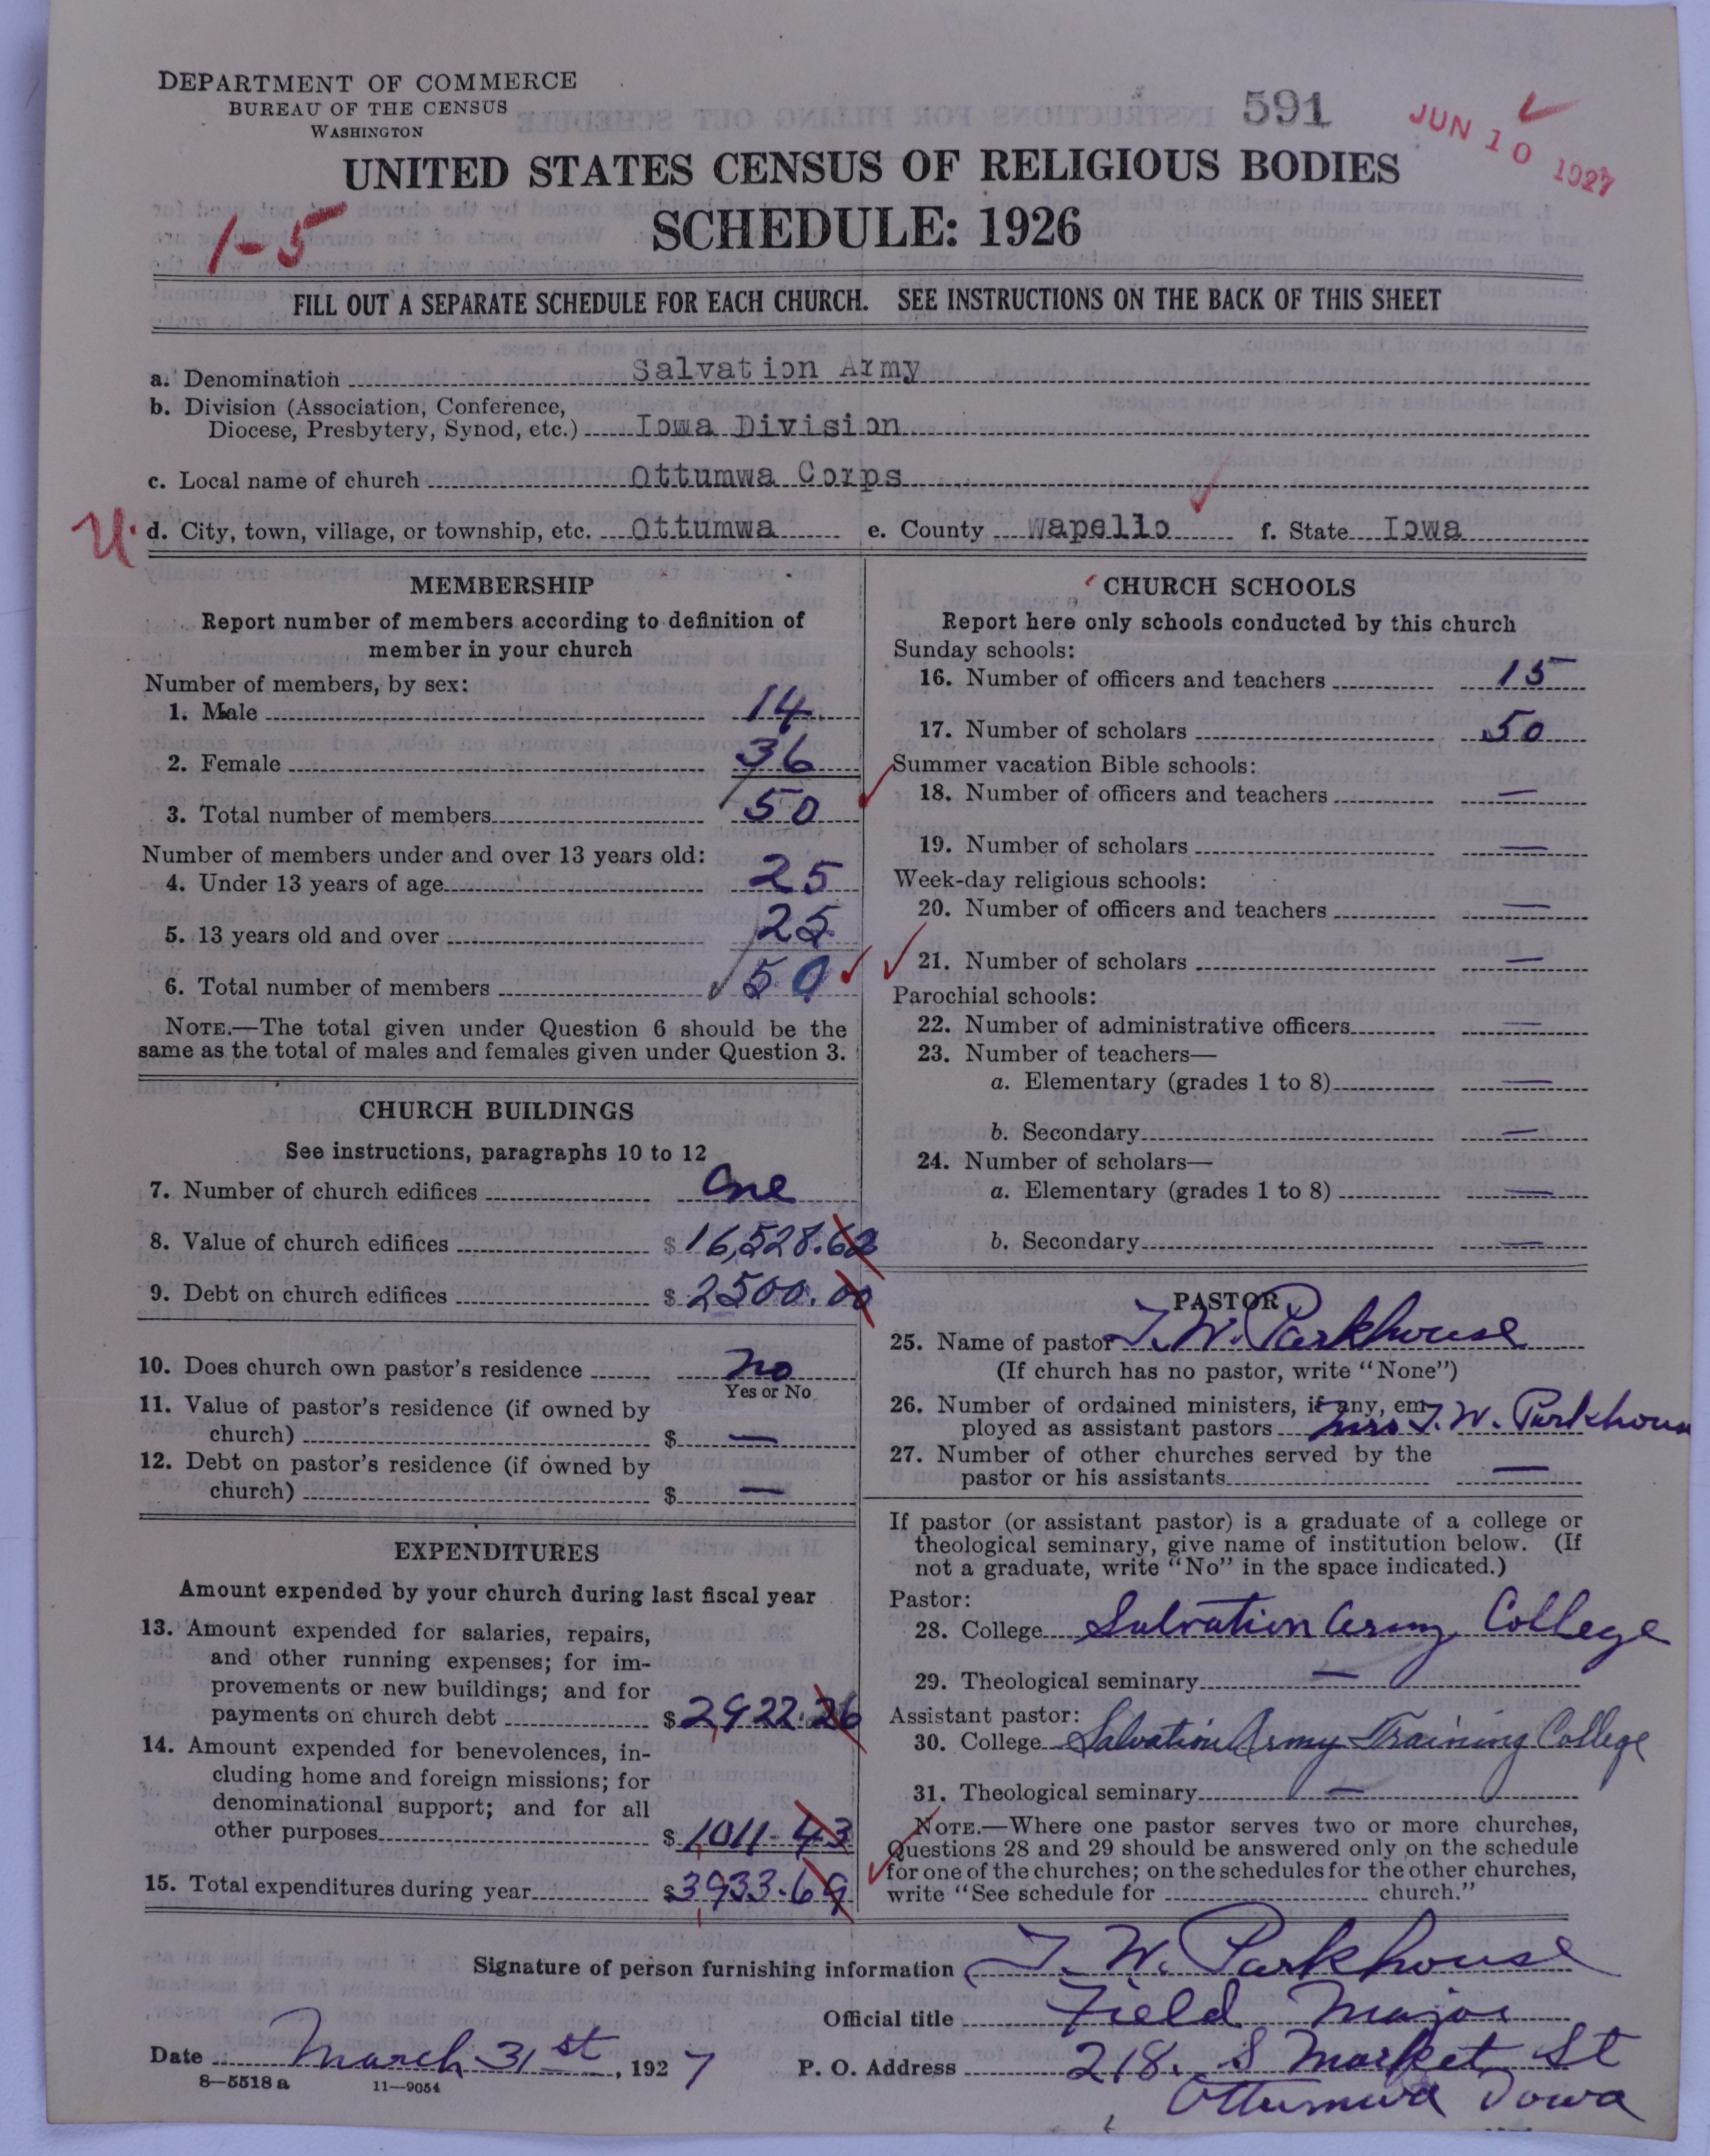 DEPARTMENT OF COMMERCE
BUREAU OF THE CENSUS
WASHINGTON
591
JUN 10 1927
UNITED STATES CENSUS OF RELIGIOUS BODIES
SCHEDULE: 1926
1-5
FILL OUT A SEPARATE SCHEDULE FOR EACH CHURCH. SEE INSTRUCTIONS ON THE BACK OF THIS SHEET
a. Denomination Salvation Army
b. Division (Association, Conference,
Diocese, Presbytery, Synod, etc.) Iowa Division
c. Local name of church Ottumwa Corps
U. d. City, town, village, or township, etc. Ottumwa e. County Wapello f. State Iowa
MEMBERSHIP
Report number of members according to definition of
member in your church
Number of members, by sex:
1. Male 14
2. Female 36
3. Total number of members 50
Number of members under and over 13 years old:
4. Under 13 years of age 25
5. 13 years old and over 25
6. Total number of members 50
NOTE.—The total given under Question 6 should be the
same as the total of males and females given under Question 3.
CHURCH BUILDINGS
See instructions, paragraphs 10 to 12
7. Number of church edifices One
8. Value of church edifices $ 16,528.62
9. Debt on church edifices $ 2500.00
10. Does church own pastor's residence No
Yes or No
11. Value of pastor's residence (if owned by
church) $ —
12. Debt on pastor's residence (if owned by
church) $ —
EXPENDITURES
Amount expended by your church during last fiscal year
13. Amount expended for salaries, repairs,
and other running expenses; for im-
provements or new buildings; and for
payments on church debt $ 2922.26
14. Amount expended for benevolences, in-
cluding home and foreign missions; for
denominational support; and for all
other purposes $ 1011-43
15. Total expenditures during year $ 3933.69
CHURCH SCHOOLS
Report here only schools conducted by this church
Sunday schools:
16. Number of officers and teachers 15
17. Number of scholars 50
Summer vacation Bible schools:
18. Number of officers and teachers —
19. Number of scholars —
Week-day religious schools:
20. Number of officers and teachers —
21. Number of scholars —
Parochial schools:
22. Number of administrative officers —
23. Number of teachers—
a. Elementary (grades 1 to 8) —
b. Secondary —
24. Number of scholars—
a. Elementary (grades 1 to 8) —
b. Secondary —
PASTOR
25. Name of pastor T. W. Parkhouse
(If church has no pastor, write "None")
26. Number of ordained ministers, if any, em-
ployed as assistant pastors Mrs T. W. Parkhouse
27. Number of other churches served by the
pastor or his assistants —
If pastor (or assistant pastor) is a graduate of a college or
theological seminary, give name of institution below. (If
not a graduate, write "No" in the space indicated.)
Pastor:
28. College Salvation Army College
29. Theological seminary —
Assistant pastor:
30. College Salvation Army Training College
31. Theological seminary —
NOTE.—Where one pastor serves two or more churches,
Questions 28 and 29 should be answered only on the schedule
for one of the churches; on the schedules for the other churches,
write "See schedule for church."
Signature of person furnishing information T. W. Parkhouse
Official title Field Major
Date March 31st, 1927 P. O. Address 218. S Market St
Ottumwa Iowa
8—5518 a 11—9054